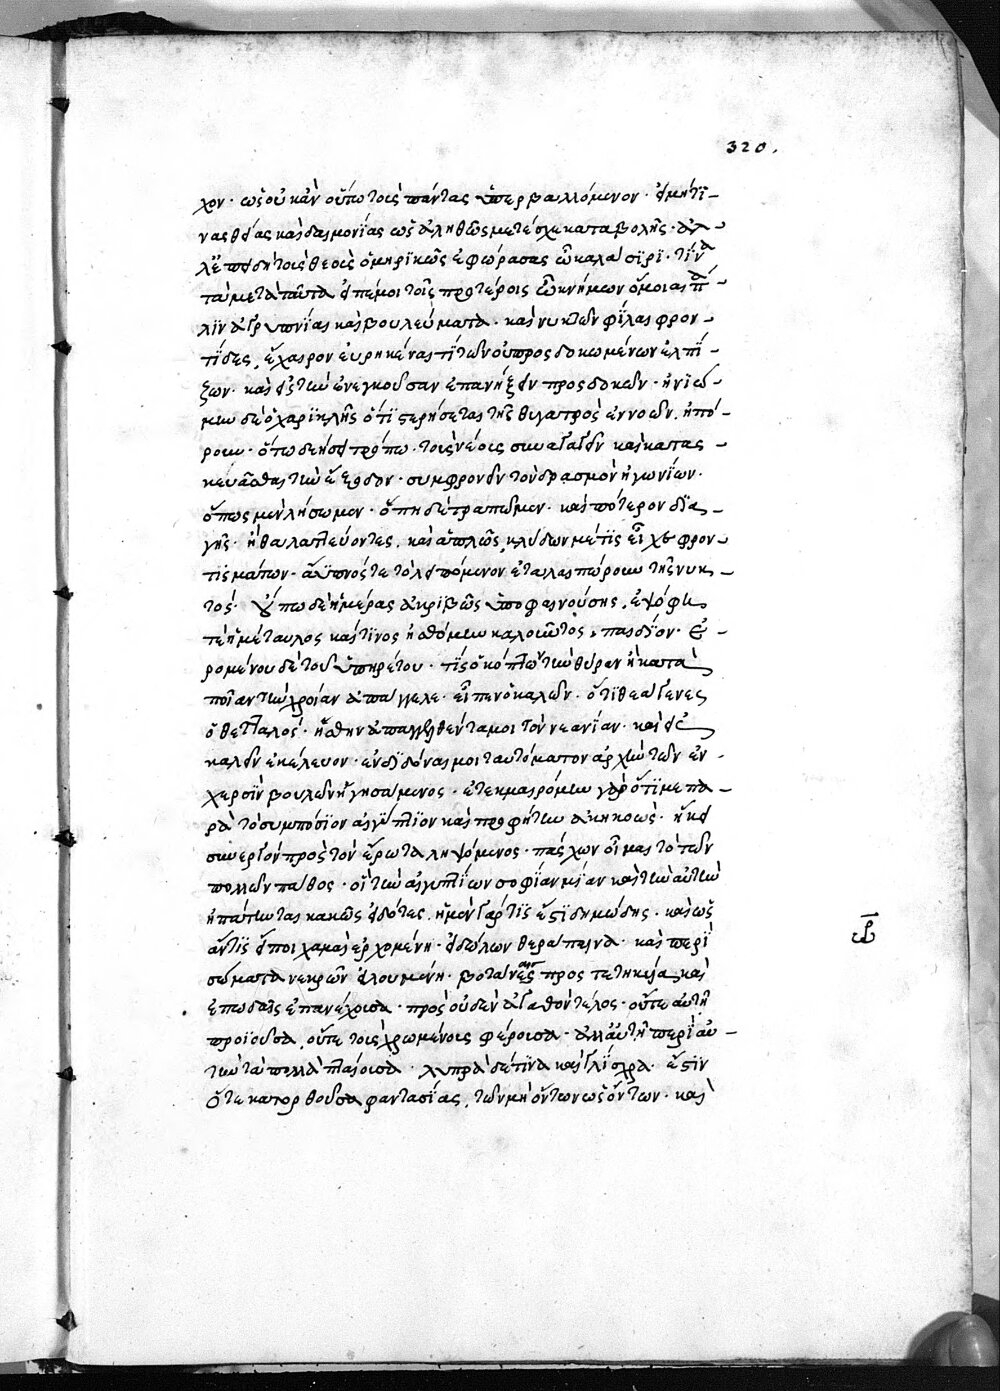 320.
χον· ὡς οὐκἂν οὕτω τοὺς πάντας ὑπερβαλλόμενον· εἰ μή τι-
νας θείας καὶ δαιμονίας ὡς ἀληθῶς μετέσχε καταβολῆς· ἀλ-
λ' ἐπειδὴ τοὺς θεοὺς ὁμηρικῶς ἐφώρασας ὦ καλάσιρι· τίνα
τὰ μετὰ ταῦτα εἰπέ μοι τοῖς προτέροις ὦ κνήμων ὅμοια· πά-
λιν ἀγρυπνίας καὶ βουλεύματα· καὶ νυκτῶν φίλας φρον-
τίδες, ἔχαιρον εὑρηκέναι τί τῶν οὐ προσδοκωμένων ἐλπί-
ζων· καὶ εἰς τὴν ἐνεγκοῦσαν ἐπανήξειν προσδοκῶν· ἠνιώ-
μην δὲ ὁ χαρικλῆς ὅτι στερήσεται τῆς θυγατρὸς ἐννοῶν, ἠπό-
ρουν· ὅτω δεήσει τρόπω· τοὺς νέους συναγαγεῖν καὶ κατασ-
κευάσθαι τὴν ἔξοδον· συμφρονεῖν τὸν δρασμὸν ἠγωνίων·
ὅπως μὲν λήσωμεν· ὅπη δὲ τραπῶμεν· καὶ πότερον διὰ
γῆς· ἢ θαλαττεύοντες, καὶ ἁπλῶς κλύδων μέ τις εἶχε φρον-
τισμάτων· ἄϋπνός τε τὸ λειπόμενον ἐταλαιπώρουν τῆς νυκ-
τός· οὔπω δὲ ἡμέρας ἀκριβῶς ὑποφαινούσης, ἐψόφει
τε ἡ μέταυλος καί τινος ἠσθόμην καλοῦντος, παιδίον· ἐ-
ρομένου δὲ τοῦ ὑπηρέτου· τίς ὁ κόπτων τὴν θύραν ἢ κατὰ
ποίαν τὴν χρείαν ἀπάγγελε· εἶπεν ὁ καλῶν· ὅτι θεαγένες
ὁ θετταλός· ἥσθην ἀπαγγελθέντα μοι τὸν νεανίαν· καὶ εἰσ
καλεῖν ἐκέλευον· ἐνδιδόναι μοι ταυτόματον ἀρχὴν τῶν ἐν
χερσὶν βουλῶν ἡγησάμενος· ἐτεκμαιρόμην γὰρ ὅτι με πα-
ρὰ τὸ συμπόσιον αἰγύπτιον καὶ προφήτην ἀκηκοώς· ἥκει
συνεργὸν πρὸς τὸν ἔρωτα ληψόμενος· πάσχων οἶμαι τὸ τῶν
πολλῶν πάθος· οἳ τὴν αἰγυπτίων σοφίαν μίαν καὶ τὴν αὐτὴν
ἠπάτηνται κακῶς εἰδότες, ἡ μὲν γάρ τίς ἐστι δημώδης· καὶ ὡς
ἄν τις εἴποι χαμαὶ ἐρχομένη· εἰδώλων θεράπαινα· καὶ περὶ
σώματα νεκρῶν εἰλουμένη· βοτάναις προστετηκυῖα, καὶ
ἐπωδαῖς ἐπανέχουσα· πρὸς οὐδὲν ἀγαθὸν τέλος· οὔτε αὐτὴ
προϊοῦσα, οὔτε τοὺς χρωμένους φέρουσα· ἀλλ' αὐτὴ περὶ αὑ-
τὴν τὰ πολλὰ πταίουσα· λυπρὰ δέ τινα καὶ γλίσχρα· ἔστιν
ὅτε κατορθοῦσα φαντασίας, τῶν μὴ ὄντων ὡς ὄντων· καὶ